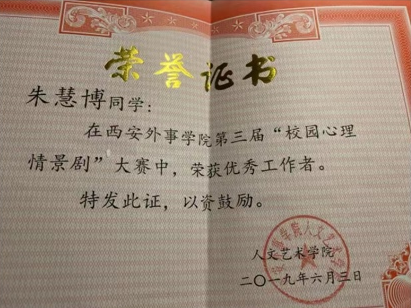 荣誉证书
朱慧博同学：
在西安外事学院第三届“校园心理
情景剧”大赛中，荣获优秀工作者。
特发此证，以资鼓励。
人文艺术学院
二〇一九年六月三日